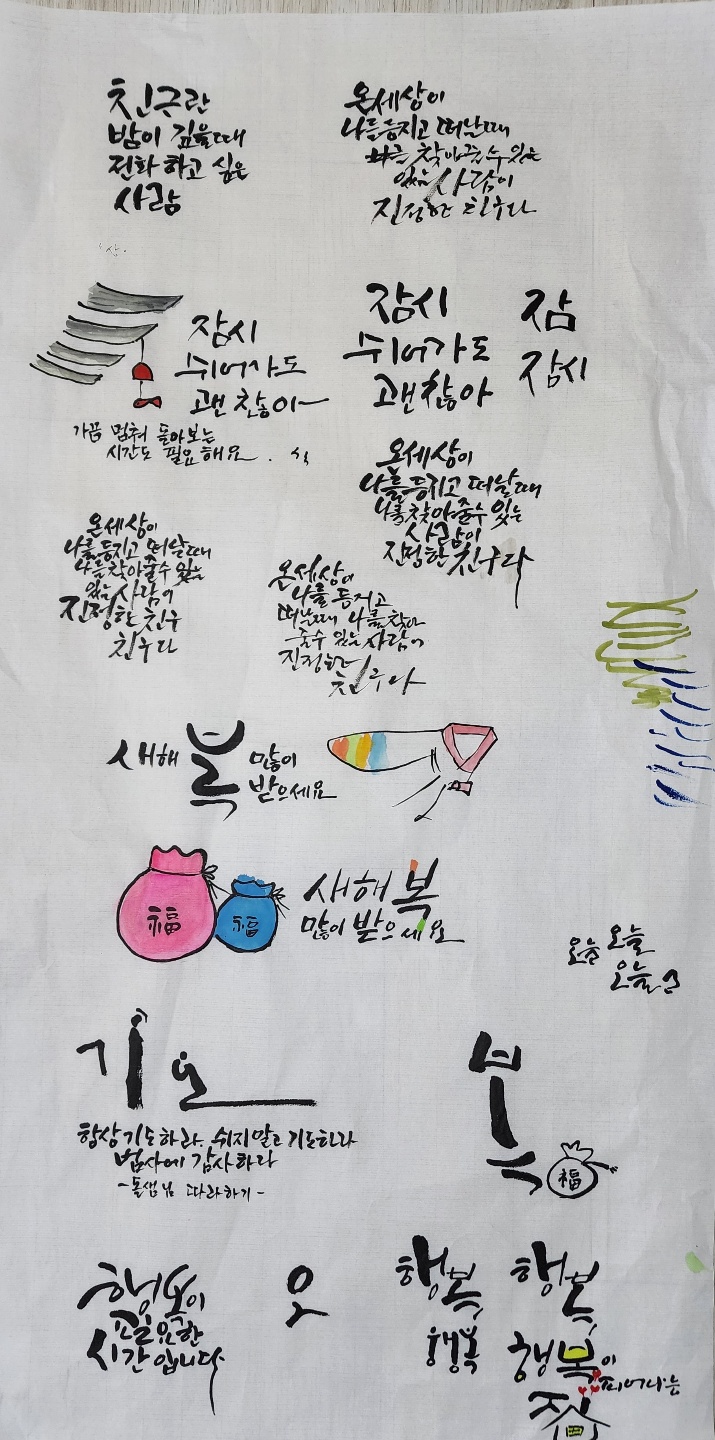 친구란
밤이 깊을때
전화 하고 싶은
사람
온세상이
나를등지고 떠날때
나를 찾아줄수있는
있는 사람이
진정한 친구다
잠시
쉬어가도
괜찮아
가끔 멈춰 돌아보는
시간도 필요해요.
잠시
쉬어가도
괜찮아
잠
잠시
온세상이
나를등지고 떠날때
나를찾아줄수있는
사람이
진정한친구다
온세상이
나를등지고 떠날때
나를찾아줄수있는
있는사람이
진정한친구
친구다
온세상이
나를등지고
떠날때 나를찾아
줄수있는사람이
진정한
친구다
새해 복 많이
받으세요
福 福
새해 복
많이 받으세요
오늘 오늘
오늘
기도
항상기도하라. 쉬지말고 기도하라
범사에 감사하라
-돌샘님 따라하기-
복
福
행복이
필요한
시간입니다
오
행복
행복
행복
행복이
피어나는
집